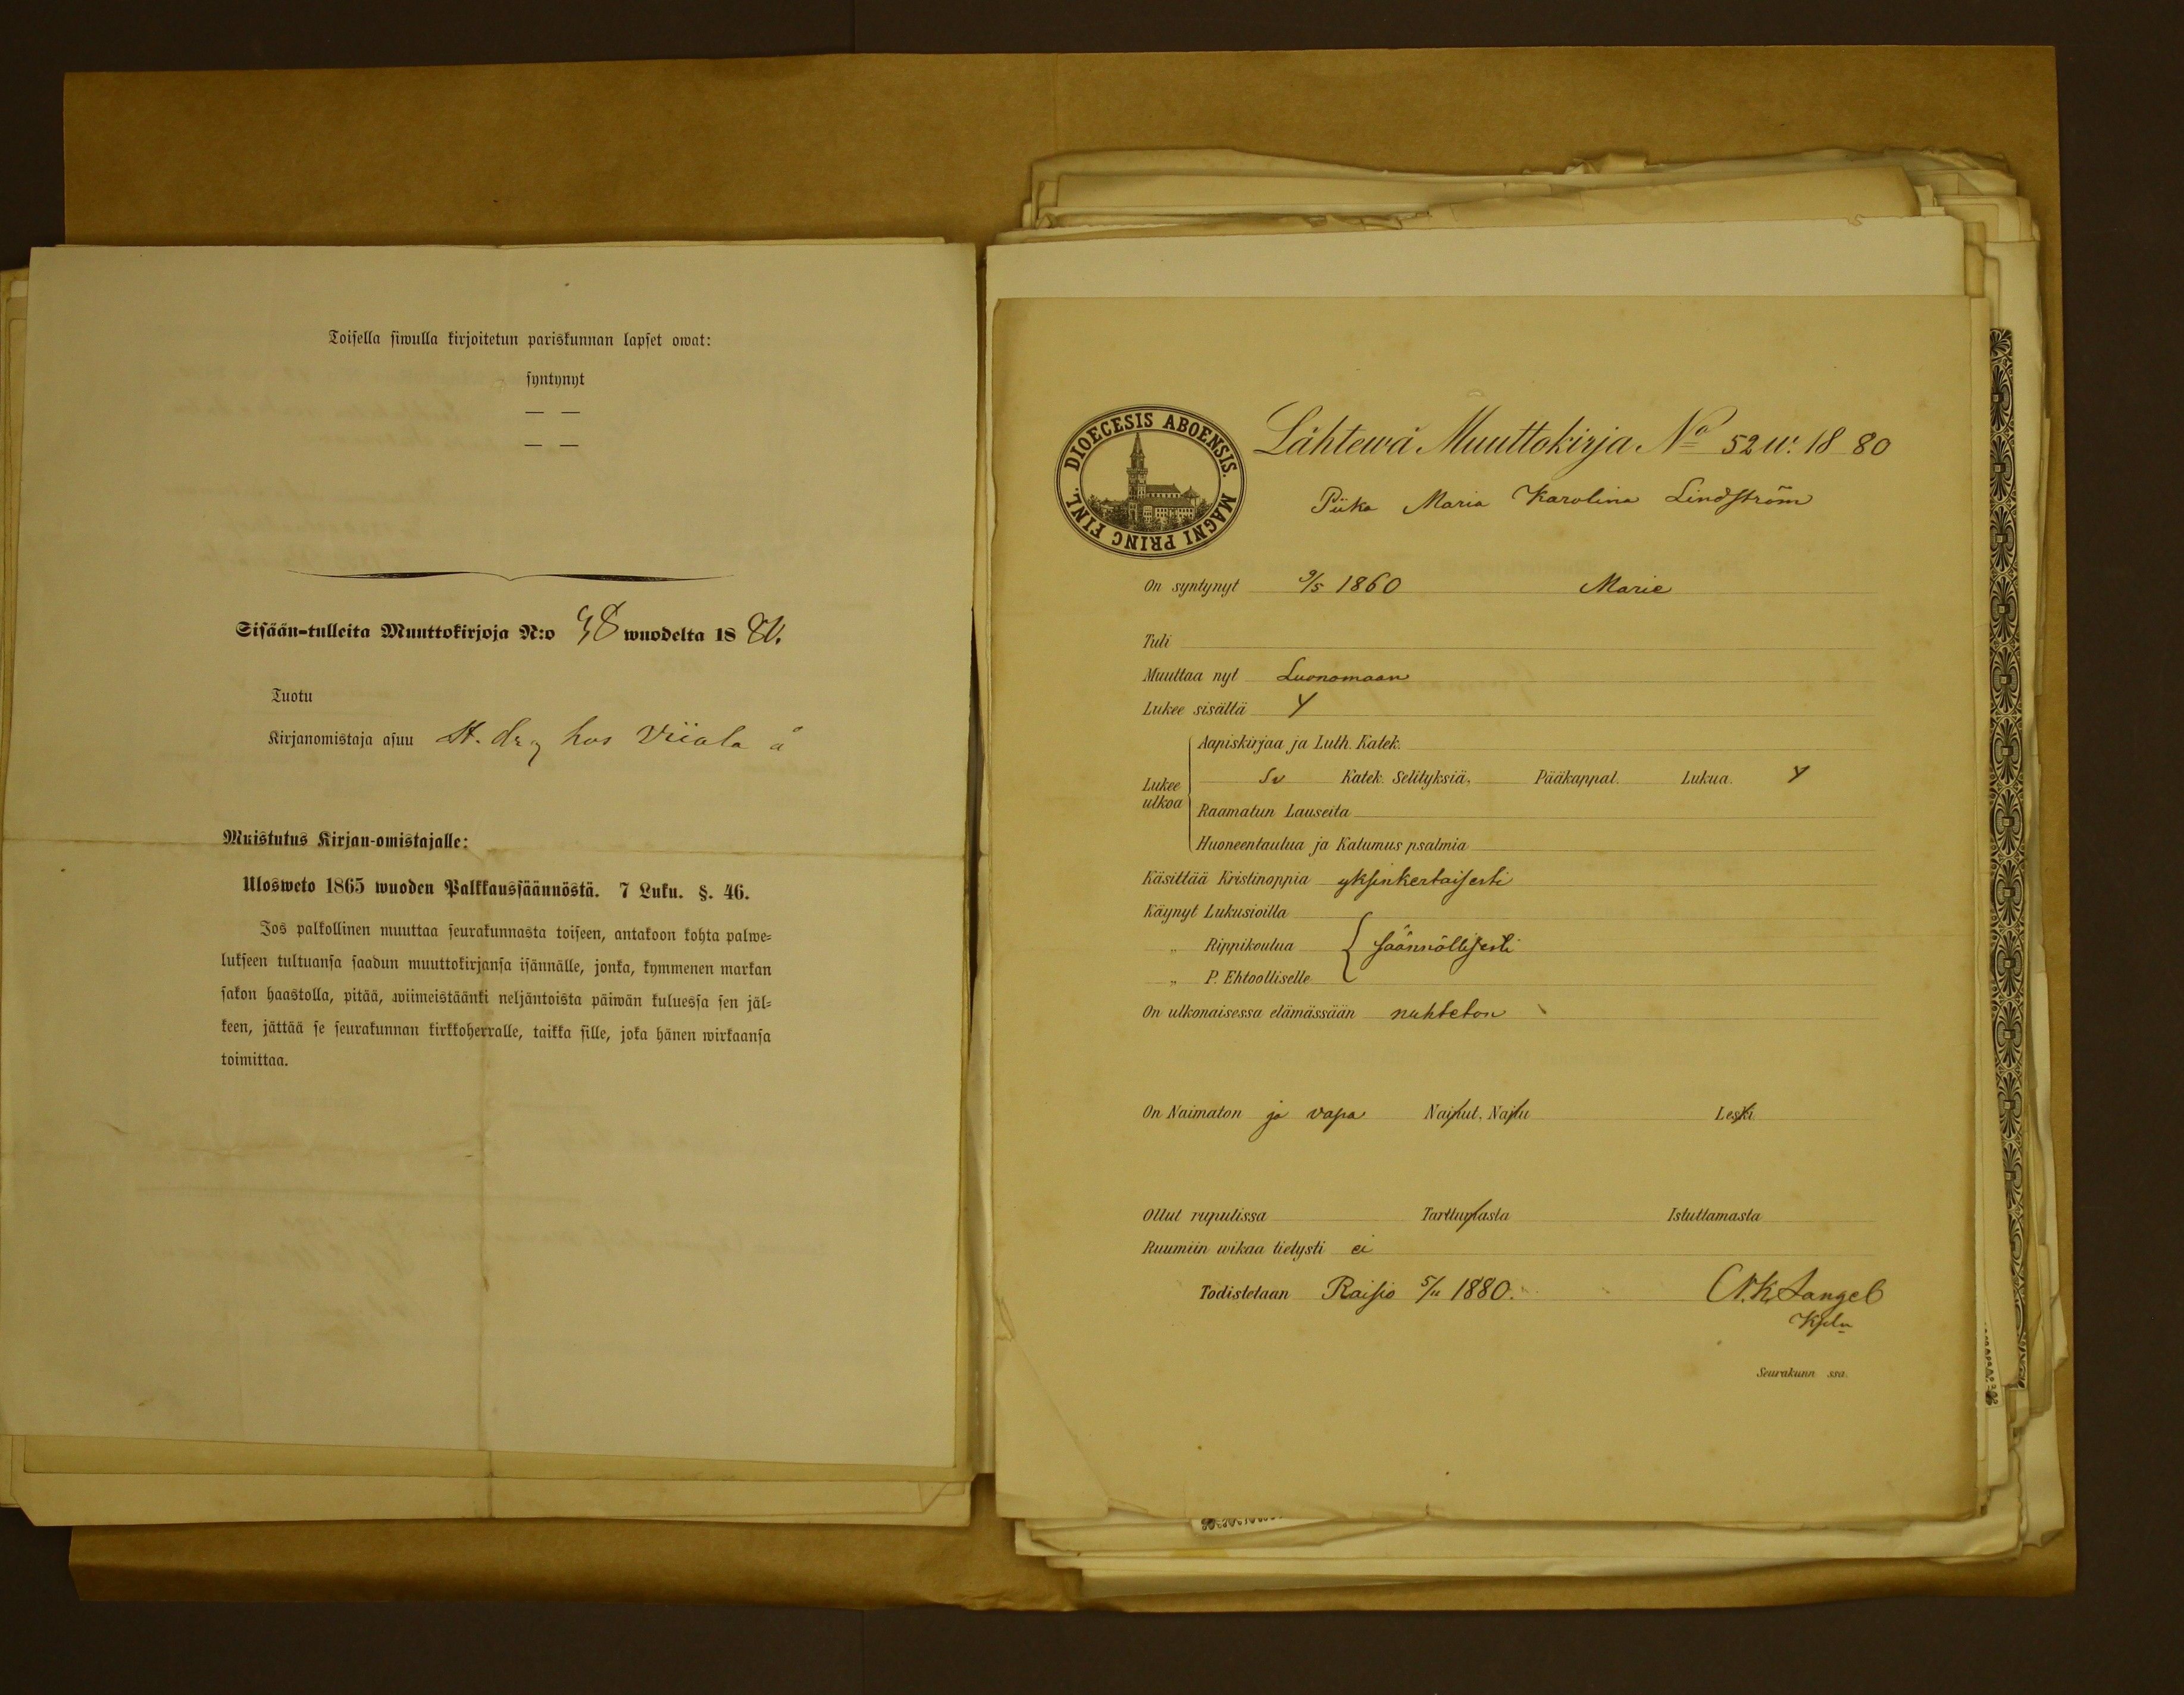 Toisella siwulla kirjoitetun pariskunnan lapset owat:
syntynyt
— —
— —
Sisään-tulleita Muuttokirjoja N:o 98 wuodelta 18 80.
Tuotu
Kirjanomistaja asuu St. dr hos Viiala å
Muistutus Kirjan-omistajalle:
Ulosweto 1865 wuoden Palkkaussäännöstä. 7 Luku. §. 46.
Jos palkollinen muuttaa seurakunnasta toiseen, antakoon kohta palwe-
lukseen tultuansa saadun muuttokirjansa isännälle, jonka, kymmenen markan
sakon haastolla, pitää, wiimeistäänki neljäntoista päiwän kuluessa sen jäl-
keen, jättää se seurakunnan kirkkoherralle, taikka sille, joka hänen wirkaansa
toimittaa.
DIOECESIS ABOENSIS. MAGNI PRINC FINL.
Lähtewä Muuttokirja No 52 w. 18 80
Piika Maria Karolina Lindström
On syntynyt 9/5 1860 Marie
Tuli
Muuttaa nyt Luonomaan
Lukee sisältä Y
Lukee ulkoa
Aapiskirjaa ja Luth. Katek.
Sv Katek. Selityksiä, Pääkappal. Lukua. Y
Raamatun Lauseita
Huoneentaulua ja Katumus psalmia
Käsittää Kristinoppia yksinkertaisesti
Käynyt Lukusioilla
„ Rippikoulua säännöllisesti
„ P. Ehtoolliselle
On ulkonaisessa elämässään nuhteton
On Naimaton ja vapa Nainut, Naitu Leski
Ollut rupulissa Tarttumasta Istuttamasta
Ruumiin wikaa tietysti ei
Todistetaan Raisio 5/11 1880. K. Langel
Kpln
Seurakunn ssa.